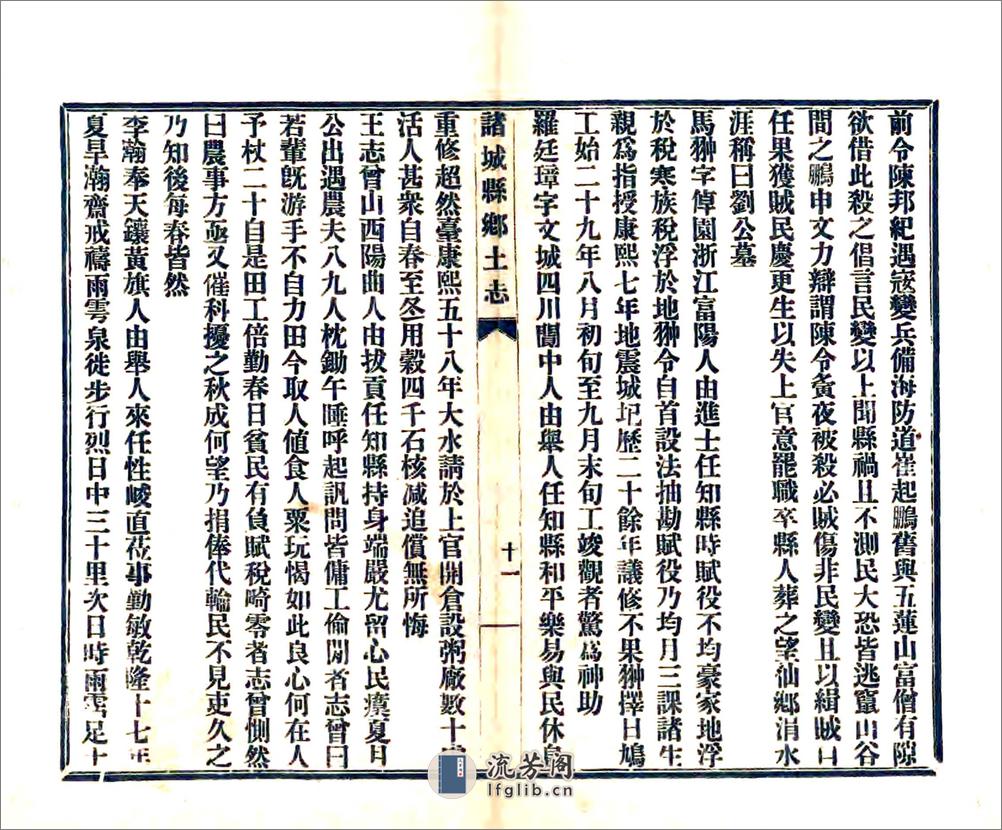 前令陳邦紀遇寇變兵備海防道崔起鵬舊與五蓮山富僧有隙
欲借此殺之倡言民變以上聞縣禍且不測民大恐皆逃竄山谷
間之鵬申文力辯謂陳令夤夜被殺必賊傷非民變且以緝賊自
任果獲賊民慶更生以失上官意罷職卒縣人葬之望仙鄉涓水
涯稱曰劉公墓
馬翀字倬園浙江富陽人由進士任知縣時賦役不均豪家地浮
於稅寒族稅浮於地翀令自首設法抽勘賦役乃均月三課諸生
親爲指授康熙七年地震城圮歷二十餘年議修不果翀擇日鳩
工始二十九年八月初旬至九月末旬工竣觀者驚爲神助
羅廷璋字文城四川閬中人由舉人任知縣和平樂易與民休息
諸城縣鄉土志
十一
重修超然臺康熙五十八年大水請於上官開倉設粥廠數十
活人甚衆自春至冬用穀四千石核減追償無所悔
王志曾山西陽曲人由拔貢任知縣持身端嚴尤留心民瘼夏月
公出遇農夫八九人枕鋤午睡呼起訊問皆傭工偷閒者志曾曰
若輩旣游手不自力田今取人値食人粟玩愒如此良心何在人
予杖二十自是田工倍勤春日貧民有負賦稅畸零者志曾惻然
曰農事方亟又催科擾之秋成何望乃捐俸代輸民不見吏久之
乃知後每春皆然
李瀚奉天鑲黃旗人由舉人來任性峻直莅事勤敏乾隆十七年
夏旱瀚齋戒禱雨雩泉徙步行烈日中三十里次日時雨霑足士
流芳阁
lfglib.cn